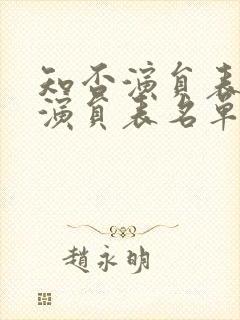 知否演員表
演員表名單
趙永明